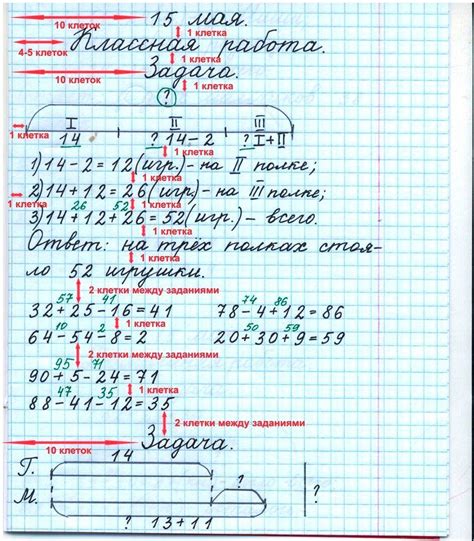 10 клеток 15 мая.
1 клетка
4-5 клеток Классная работа.
1 клетка
10 клеток Задача.
1 клетка
?
I II III
1 клетка 14 ? 14-2 ? I+II
1) 14-2=12(игр.)- на II полке;
1 клетка
2) 14+12=26(игр.)- на III полке;
1 клетка 26 52 1 клетка
3) 14+12+26=52(игр.)- всего.
1 клетка
Ответ: на трёх полках стоя-
1 клетка
ло 52 игрушки.
2 клетки между заданиями
57 41 74 86
32+25-16=41 78-4+12=86
1 клетка
10 2 50 59
64-54-8=2 20+30+9=59
2 клетки между заданиями
95 71
90+5-24=71
1 клетка
47 35
88-41-12=35
2 клетки между заданиями
10 клеток Задача.
14
Г.
М. ? ?
? 13+11